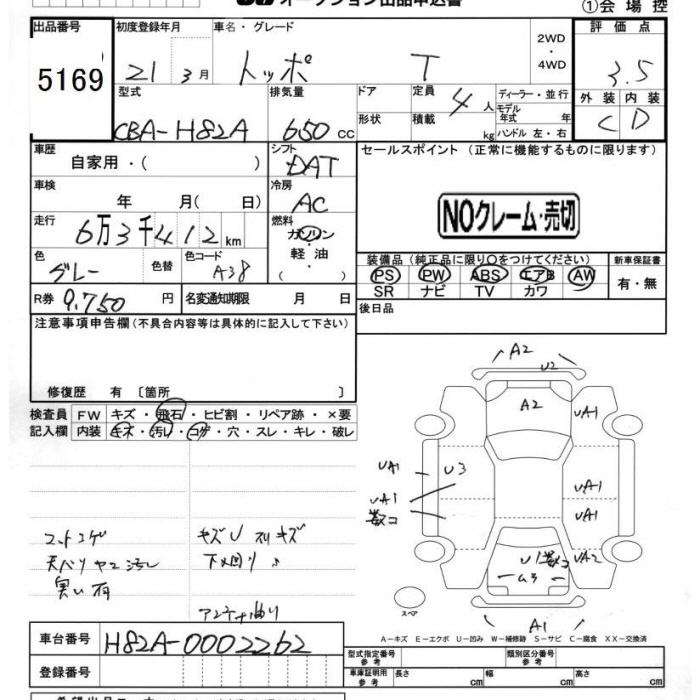 オークション出品申込書 ①会場控
出品番号 初度登録年月 車名・グレード 2WD ・ 4WD 評価点
5169 21 3月 トッポ T 3.5
型式 排気量 ドア 定員 4人 ディーラー・並行 外装 内装
CBA-H82A 650cc 形状 積載 kg モデル年式 年 ハンドル 左・右 C D
車歴 自家用・( ) シフト DAT セールスポイント (正常に機能するものに限ります)
車検 年 月( 日) 冷房 AC
NOクレーム・売切
走行 6万3千412km 燃料 ガソリン・軽油・( )
色 グレー 色替 色コード A38 装備品 (純正品に限り○をつけてください) 新車保証書
PS PW ABS エアB AW 有・無
SR ナビ TV カワ
R券 9.750円 名変通知期限 月 日 後日品
注意事項申告欄 (不具合内容等は具体的に記入して下さい)
修復歴 有 〔箇所 〕
検査員記入欄 FW キズ・飛石・ヒビ割・リペア跡・×要
内装 キズ・汚れ・コゲ・穴・スレ・キレ・破レ
A2
U2
A2
UA1
UA1 U3
UA1 UA1
数コ UA1
U1 数コ UA2
U3
スペア
A1
キズU スリキズ
下回り
アンテナ曲り
車台番号 H82A-0002262
登録番号
A-キズ E-エクボ U-凹み W-補修跡 S-サビ C-腐食 XX-交換済
型式指定番号 参考 類別区分番号 参考
車庫証明用 参考 長さ cm 幅 cm 高さ cm